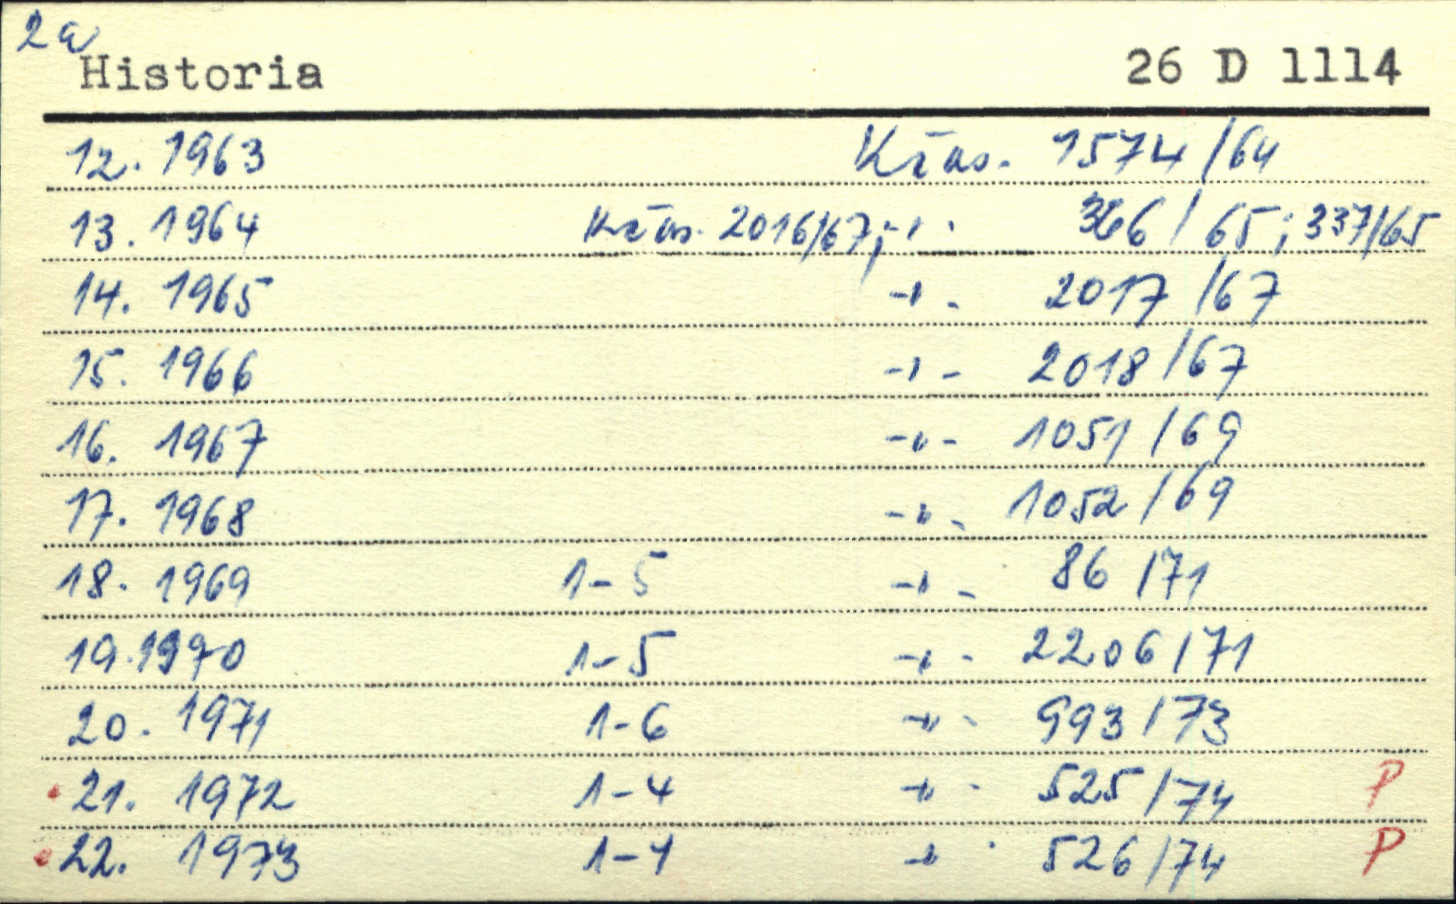 2a
Historia 26 D 1114
12. 1963 Kčas. 1574/64
13. 1964 Kčas. 2016/67; -"- 366/65; 337/65
14. 1965 -"- 2017/67
15. 1966 -"- 2018/67
16. 1967 -"- 1051/69
17. 1968 -"- 1052/69
18. 1969 1-5 -"- 86/71
19. 1970 1-5 -"- 2206/71
20. 1971 1-6 -"- 993/73
21. 1972 1-4 -"- 525/74 P
22. 1973 1-4 -"- 526/74 P